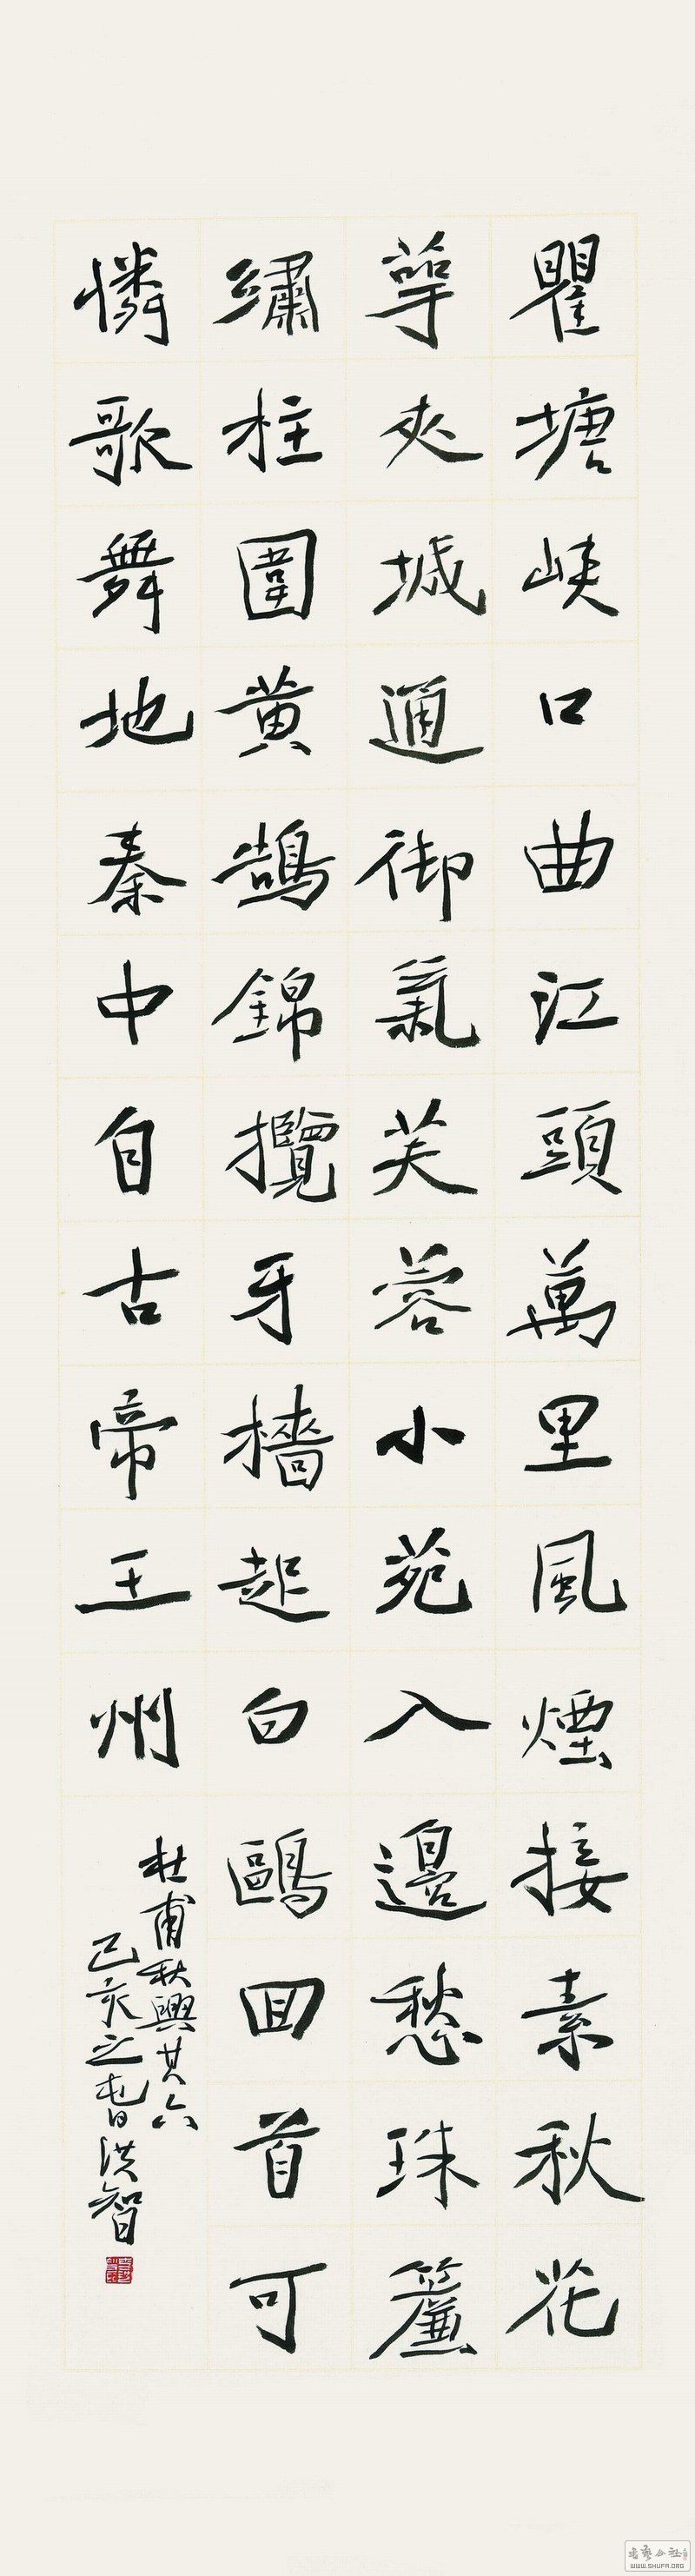 瞿塘峽口曲江頭萬里風煙接素秋花
萼夾城通御氣芙蓉小苑入邊愁珠簾
繡柱圍黃鵠錦攬牙檣起白鷗回首可
憐歌舞地秦中自古帝王州
杜甫秋興其六
己亥之春洪智
WWW.SHUFA.ORG